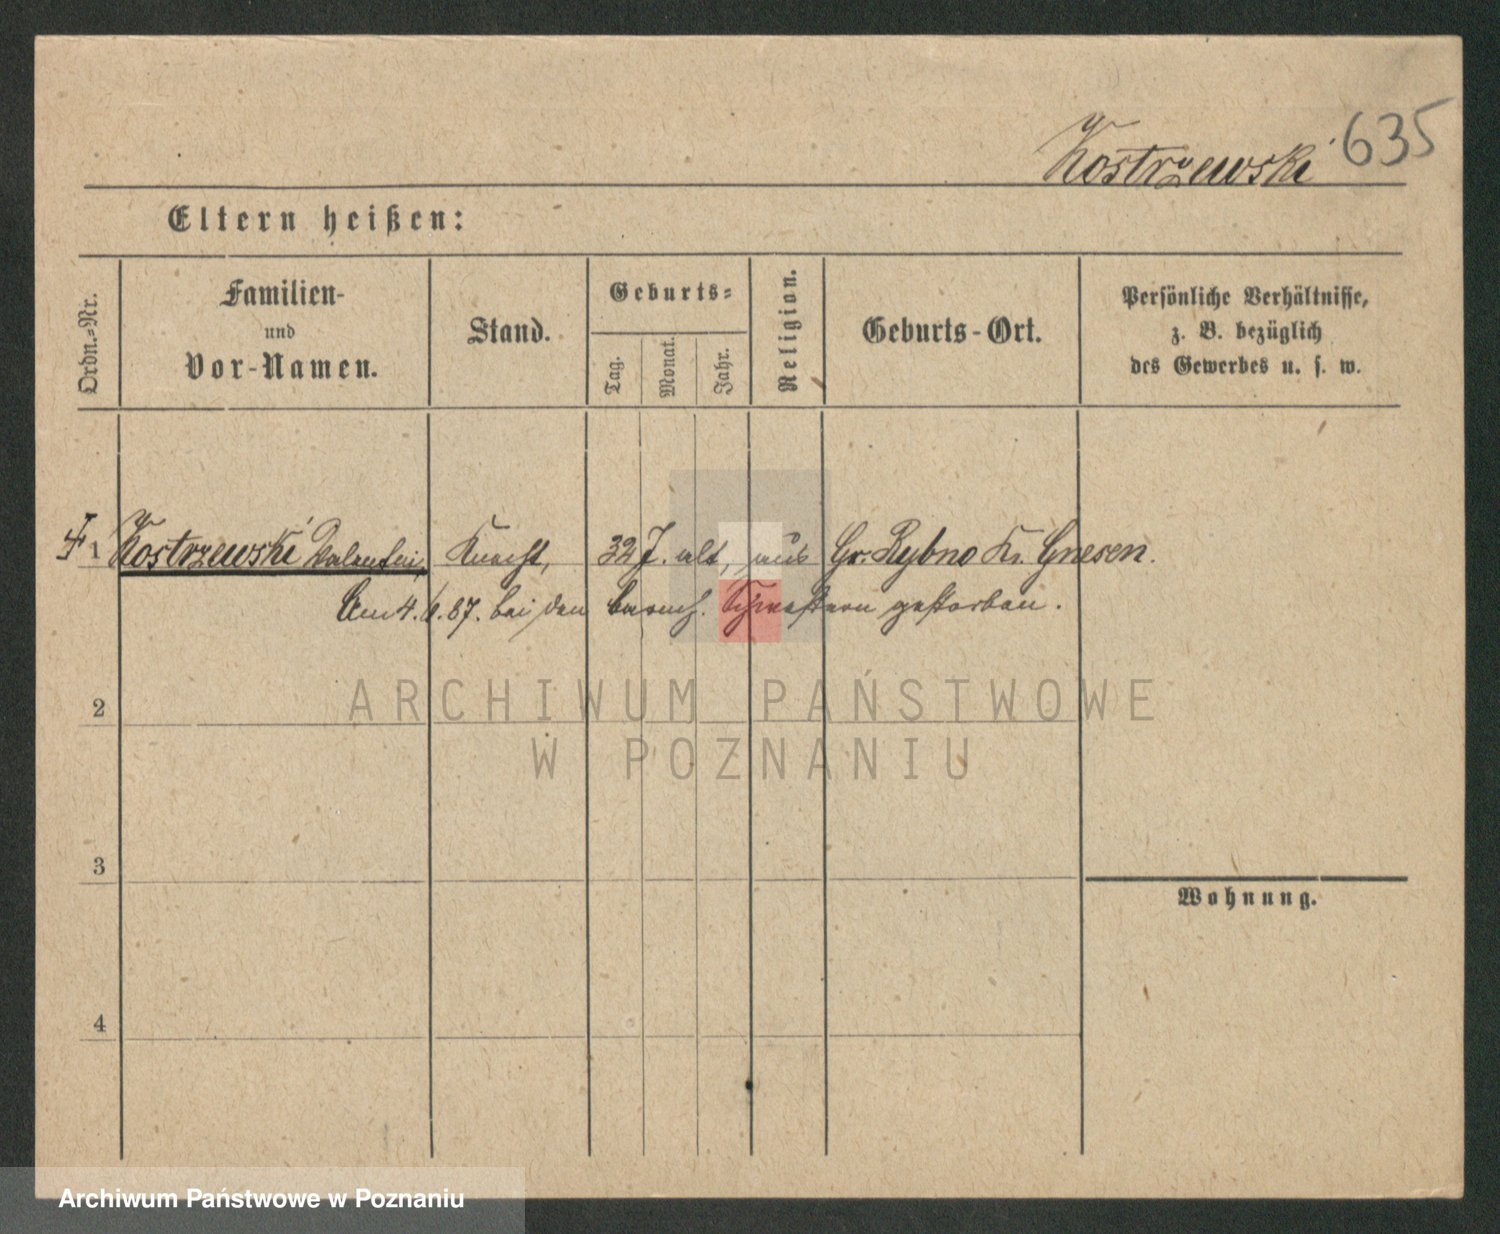 Kostrzewski 635
Eltern heißen:
Ordn.-Nr.
Familien-
und
Vor-Namen.
Stand.
Geburts-
Tag.
Monat.
Jahr.
Religion.
Geburts-Ort.
Persönliche Verhältnisse,
z. B. bezüglich
des Gewerbes u. s. w.
1 Kostrzewski Valentin, Knecht, 32 J. alt, aus Gr. Rybno Kr. Gnesen.
Am 4. 6. 87. bei den barmh. Schwestern gestorben.
2
ARCHIWUM PAŃSTWOWE
W POZNANIU
3
Wohnung.
4
Archiwum Państwowe w Poznaniu